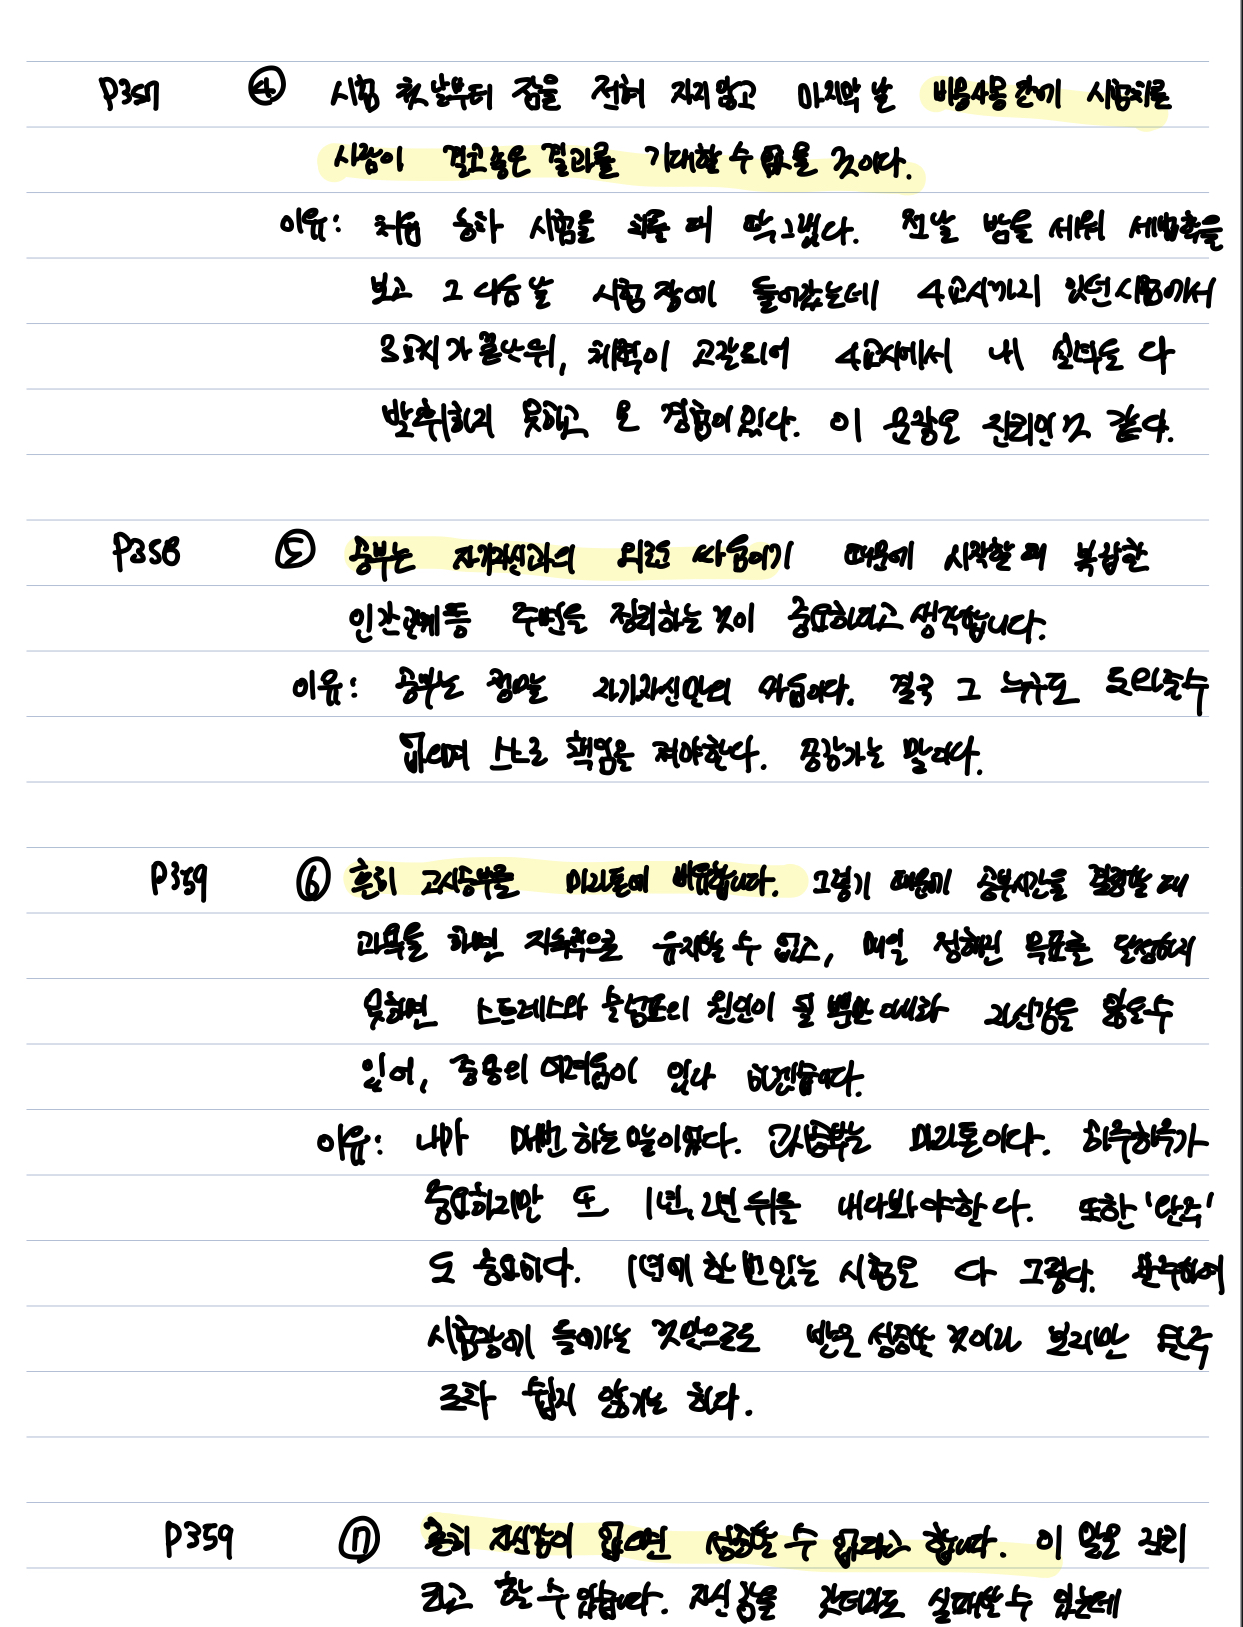 P357 ④ 시험 첫날부터 잠을 전혀 자지 않고 마지막 날 비몽사몽 간에 시험치른
사람이 결코 좋은 결과를 기대할 수 없을 것이다.
이유: 처음 동차 시험을 치를 때 딱 그랬다. 전날 밤을 세워 세법학을
보고 그 다음날 시험장에 들어갔는데 4교시까지 있던 시험에서
3교시가 끝난 뒤, 체력이 고갈되어 4교시에서 내 실력을 다
발휘하지 못하고 온 경험이 있다. 이 문장은 진리인 것 같다.
P358 ⑤ 공부는 자기자신과의 외로운 싸움이기 때문에 시작할 때 복잡한
인간관계 등 주변을 정리하는 것이 중요하다고 생각합니다.
이유: 공부는 정말 자기자신만의 싸움이다. 결국 그 누구도 도와줄 수
없으며 스스로 책임을 져야한다. 공감가는 말이다.
P359 ⑥ 흔히 고시공부를 마라톤에 비유합니다. 그렇기 때문에 공부시간을 결정할 때
과욕을 하면 지속적으로 유지할 수 없고, 매일 정해진 목표를 달성하지
못하면 스트레스와 슬럼프의 원인이 될 뿐만 아니라 자신감을 잃을 수
있어, 중용의 어려움이 있다 하겠습니다.
이유: 내가 매번 하는 말이 있다. 고시공부는 마라톤이다. 하루하루가
중요하지만 또 1년, 2년 뒤를 내다봐야한다. 또한 '완주'
도 중요하다. 1년에 한 번 있는 시험은 다 그렇다. 완주하여
시험장에 들어가는 것만으로도 반은 성공한 것이라 보지만 완주
조차 쉽지 않기는 하다.
P359 ⑦ 흔히 자신감이 없으면 성공할 수 없다고 합니다. 이 말은 진리
라고 할 수 있습니다. 자신감을 갖더라도 실패할 수 있는데